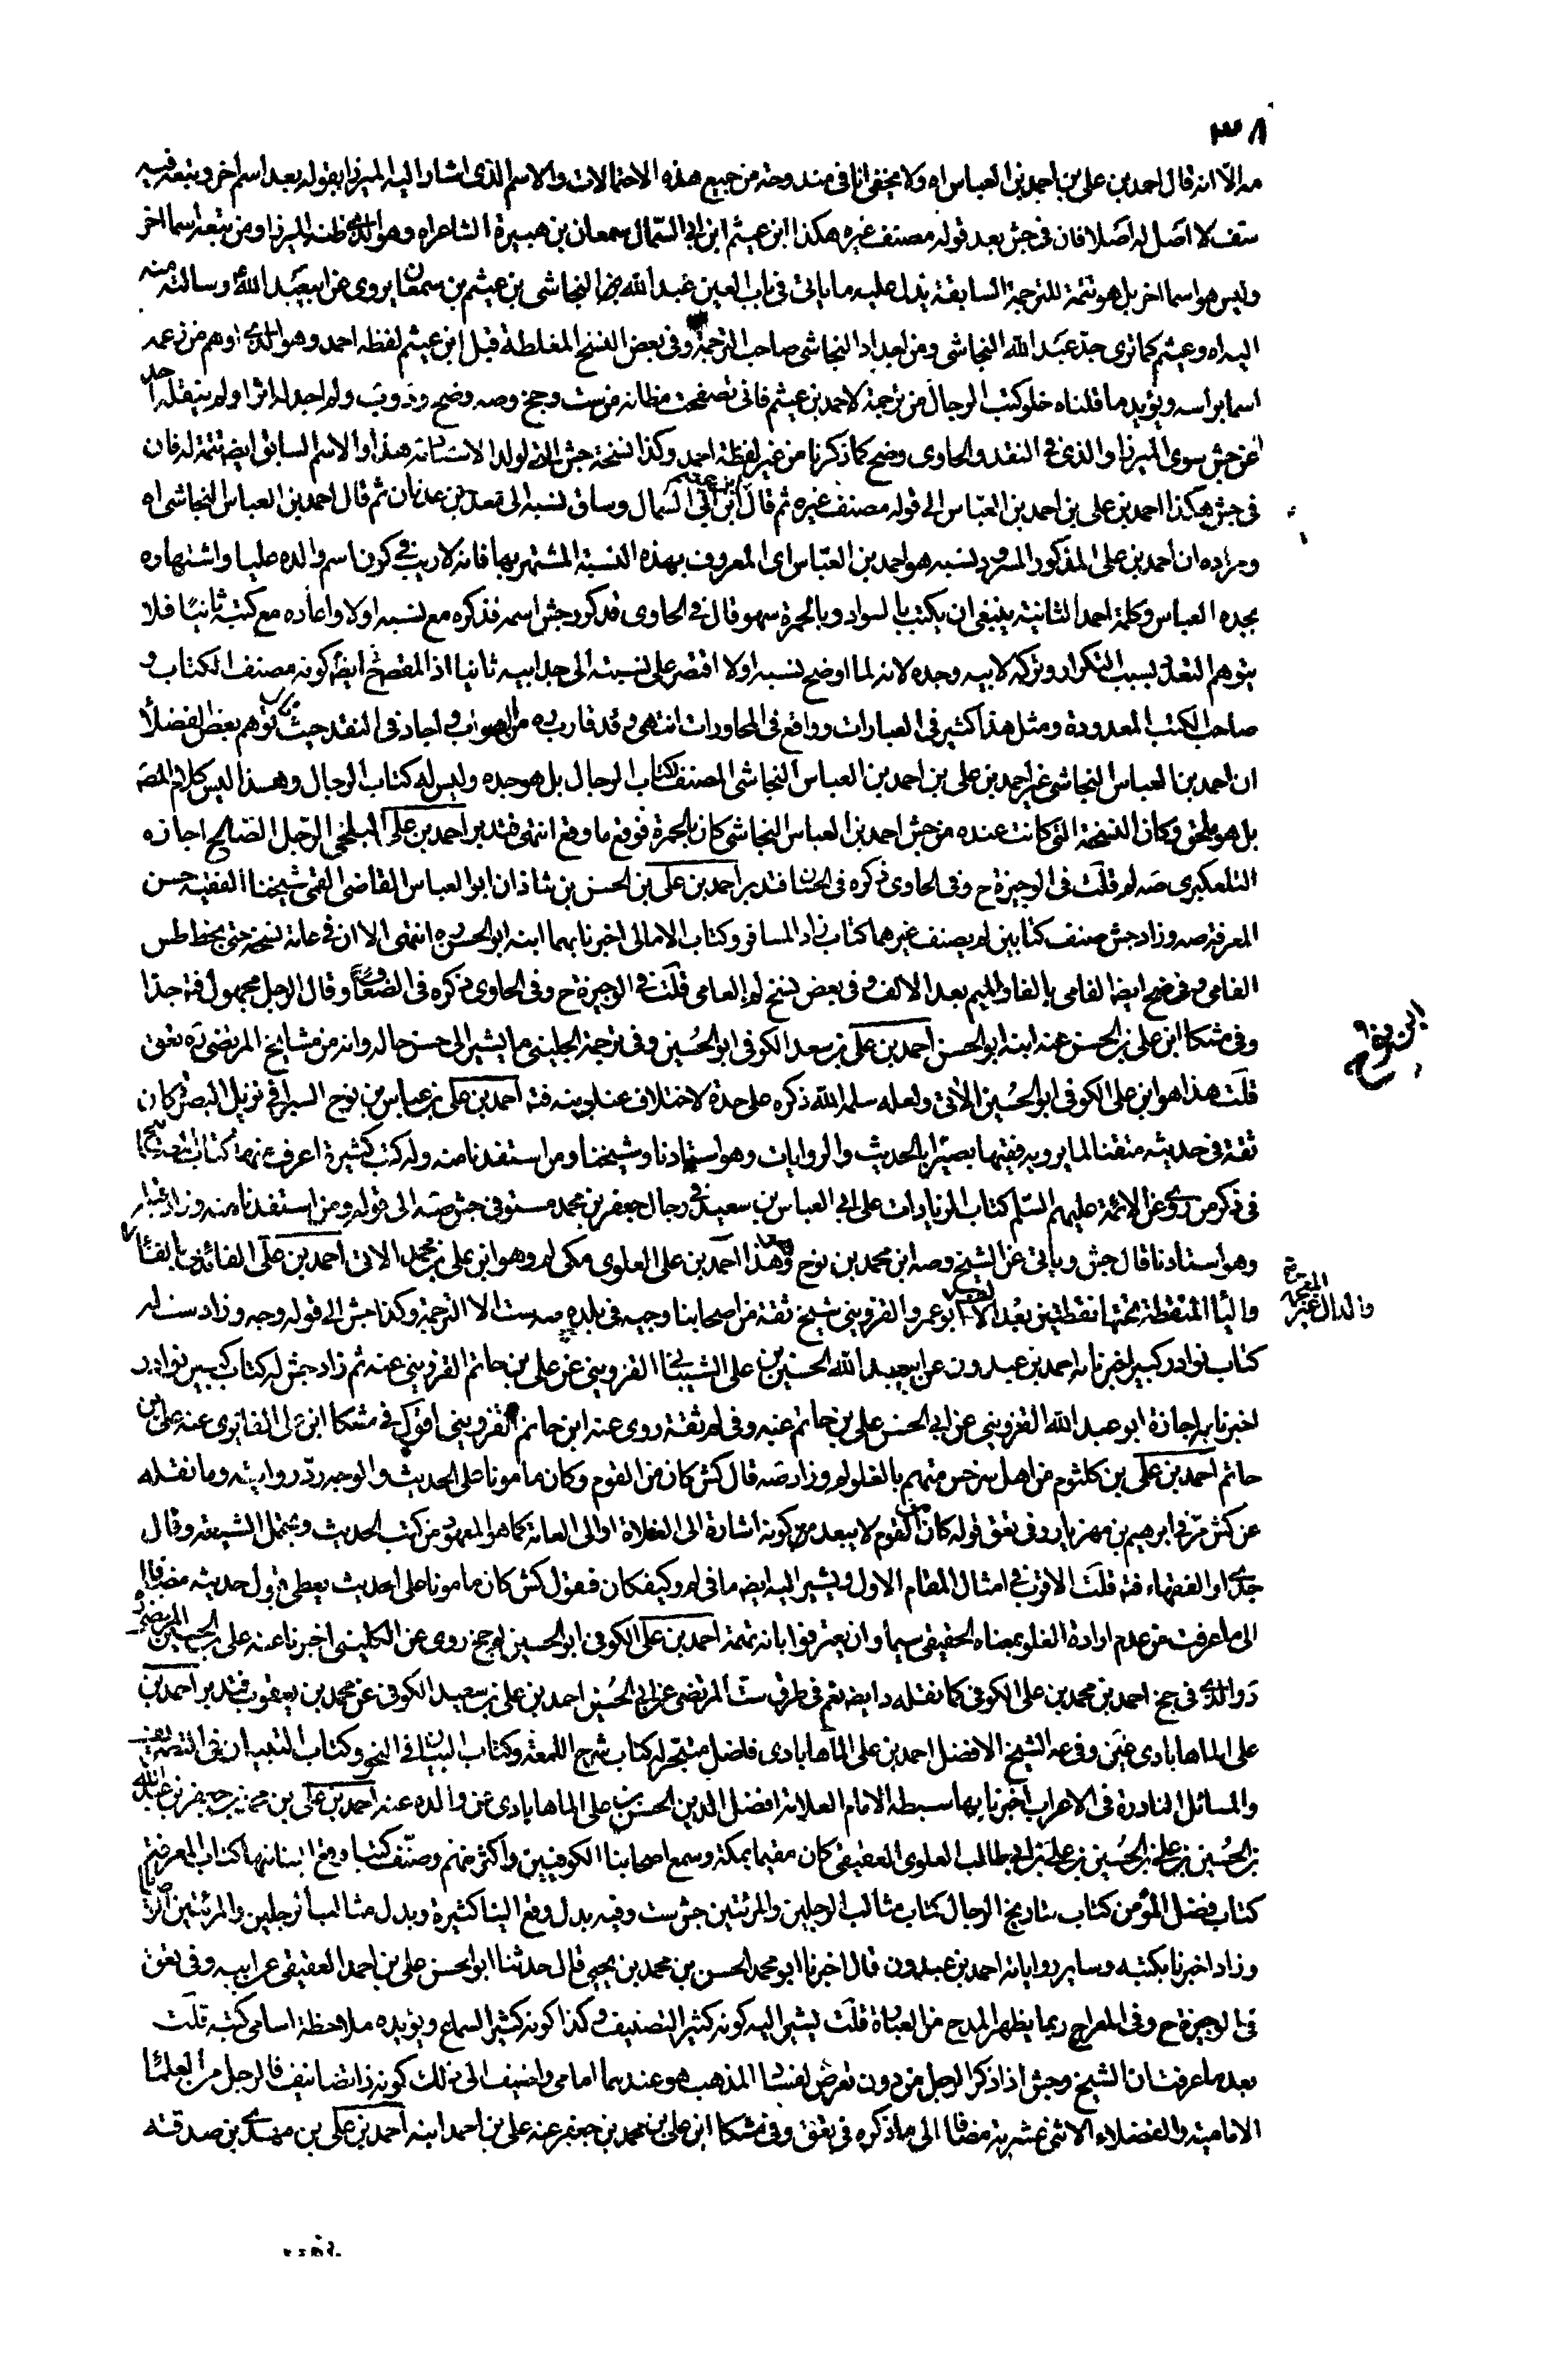 ٣٨
مه الا انه قال احمد بن علی بن احمد بن العباس اه ولا یخفی انا فی مندوحة من جمیع هذه الاحتمالات والاسم الذی اشار الیه المیرزا بقوله بعد اسم اخر وتبعه فیه
ستف لا اصل له اصلا فان فی جش بعد قوله مصنف غیره هکذا ابن عیثم ابن ابی السمال سمعان بن هبیرة الشاعر اه وهو الذی ظنه المیرزا ومن تبعه اسما اخر
ولیس هو اسما اخر بل هو تتمة للترجمة السابقة یدل علیه ما یاتی فی باب العین عبد الله بن النجاشی بن عیثم بن سمعان یروی عن ابیعبد الله وسالة منه
الیه اه وعیثم کما تری جد عبد الله النجاشی ومن اجداد النجاشی صاحب الترجمة وفی بعض النسخ المغلطة قبل ابن عیثم لفظه احمد وهو الذی اوهم من زعمه
اسما براسه ویؤید ما قلناه خلو کتب الرجال من ترجمة لاحمد بن عیثم فانی تصفحت مظانه من ست وجخ وصه وضح ود وب ولم اجد له اثرا ولم ینقله احد
عن جش سوی المیرزا والذی فی النقد والحاوی وضح کما ذکرنا من غیر لفظة احمد وکذا نسخة جش التی لولد الاستاد هذا والاسم السابق ایضا تتمة له فان
فی جش هکذا احمد بن علی بن احمد بن العباس الی قوله مصنف غیره ثم قال ابن عیثم ابن ابی السمال وساق نسبه الی معد بن عدنان ثم قال احمد بن العباس النجاشی اه
ومراده ان احمد بن علی المذکور المسرود نسبه هو احمد بن العباس ای المعروف بهذه النسبة المشتهر بها فانه لا ریب فی کون اسم والده علیا واشتهاره
بجده العباس وکلمة احمد الثانیة ینبغی ان یکتب بالسواد وبالحمرة سهو قال فی الحاوی قد کرر جش اسمه فذکره مع نسبه اولا واعاده مع کتبه ثانیا فلا
یتوهم التعدد بسبب التکرار وترکه لابیه وجده لانه لما اوضح نسبه اولا اقتصر علی نسبته الی جد ابیه ثانیا اذ المقصود ایضا کونه مصنف الکتاب و
صاحب الکتب المعدودة ومثل هذا کثیر فی العبارات وواقع فی المحاورات انتهی وقد قارب من الصواب واجاد فی النقد حیث قال توهم بعض الفضلاء
ان احمد بن العباس النجاشی غیر احمد بن علی بن احمد بن العباس النجاشی المصنف لکتاب الرجال بل هو جده ولیس له کتاب الرجال وهذا لیس کلام المصه
بل هو ملحق وکان النسخة التی کانت عنده من جش احمد بن العباس النجاشی کان بالحمرة فوقع ما وقع انتهی فتدبر احمد بن علی البلخی الرجل الصالح اجازه
التلعکبری صه لم قلت فی الوجیزة ح وفی الحاوی ذکره فی الحسان فتدبر احمد بن علی بن الحسن بن شاذان ابو العباس القاضی القمی شیخنا الفقیه حسن
المعرفة صه وزاد جش صنف کتابین لم یصنف غیرهما کتاب زاد المسافر وکتاب الامالی اخبرنا بهما ابنه ابو الحسن ره انتهی الا ان فی عامة نسخه حتی بخط طس
الفامی وفی ضح ایضا الفامی بالفا والمیم بعد الالف وفی بعض نسخ لم العامی قلت فی الوجیزة ح وفی الحاوی ذکره فی الضعاف وقال الرجل مجهول فتد جدا
وفی مشکا ابن علی بن الحسن عنه ابنه ابو الحسن احمد بن علی بن سعد الکوفی ابو الحسین وفی ترجمة الکلینی ما یشیر الی حسن حاله وانه من مشایخ المرتضی ره تعق
قلت هذا هو ابن علی الکوفی ابو الحسین الاتی ولعله سلمه الله ذکره علی حدة لاختلاف عنوانه فتد احمد بن علی بن عباس بن نوح السیرافی نزیل البصرة کان
ثقة فی حدیثه متقنا لما یرویه فقیها بصیرا بالحدیث والروایات وهو استادنا وشیخنا ومن استفدنا منه وله کتب کثیرة اعرف منها کتاب المصابیح
فی ذکر من روی عن الائمة علیهم السلم کتاب الزیادات علی ابی العباس بن سعید فی رجال جعفر بن محمد مستوفی جش صه الی قوله ومن استفدنا منه وزاد
وهو استادنا قال جش ویاتی عن الشیخ وصه ابن محمد بن نوح وهذا احمد بن علی العلوی مکی لم وهو ابن علی بن محمد الاتی احمد بن علی الفائدی بالفاء
والیا المنقطة تحتها نقطتین بعد الالف ابو عمرو القزوینی شیخ ثقة من اصحابنا وجیه فی بلده صه ست الا الترجمة وکذا جش الی قوله وجه وزاد ست له
کتاب نوادر کبیر اخبرنا به احمد بن عبدون عن ابیعبد الله الحسین بن علی الشیبانی القزوینی عن علی بن حاتم القزوینی عنه ثم زاد جش له کتاب کبیر نوادر
اخبرنا به اجازة ابو عبد الله القزوینی عن ابی الحسن علی بن حاتم عنه وفی لم ثقة روی عنه ابن حاتم القزوینی اقول فی مشکا ابن علی الفایدی عنه علی بن
حاتم احمد بن علی بن کلثوم من اهل سرخس متهم بالغلو لم وزاد صه قال کش کان من القوم وکان مامونا علی الحدیث والوجه رد روایته وما نقله
عن کش مر فی ابرهیم بن مهزیار وفی تعق قوله کان من القوم لا یبعد من کونه اشارة الی الغلاة او الی العامة کما هو المعهود من کتب الحدیث ویحتمل الشیعة وقال
جدی او الفقهاء فتد قلت الاقرب فی امثال المقام الاول ویشیر الیه ایضا ما فی لم وکیفکان فقول کش کان مامونا علی الحدیث یعطی قبول حدیثه مضافا
الی ما عرفت من عدم ارادة الغلو بمعناه الحقیقی سیما وان یعترفوا بانه تتمة احمد بن علی الکوفی ابو الحسین لم جخ روی عن الکلینی اخبرنا عنه علی بن الحسین المرتضی
د والذی فی جخ احمد بن محمد بن علی الکوفی کما نقله د ایضا نعم فی طرق ست المرتضی عن ابی الحسین احمد بن علی بن سعید الکوفی عن محمد بن یعقوب فتدبر احمد بن
علی الماهابادی وفی عه الشیخ الافضل احمد بن علی الماهابادی فاضل متبحر له کتاب شرح اللمع وکتاب البیان فی النحو وکتاب التبیان فی التصریف
والمسائل النادرة فی الاعراب اخبرنا بها سبطه الامام العلامة افضل الدین الحسن بن علی الماهابادی عن والده عنه احمد بن علی بن محمد بن جعفر بن عبد الله
بن الحسین بن علی بن الحسین بن علی بن ابی طالب العلوی العقیقی کان مقیما بمکة وسمع اصحابنا الکوفیین واکثر منهم وصنف کتبا وقع الینا منها کتاب المعرفة
کتاب فضل المؤمن کتاب تاریخ الرجال کتاب مثالب الرجلین والمرئتین جش ست وفیه بدل وقع الینا کثیرة وبدل مثالب الرجلین والمرئتین
وزاد اخبرنا بکتبه وسایر روایاته احمد بن عبدون قال اخبرنا ابو محمد الحسن بن محمد بن یحیی قال حدثنا ابو الحسن علی بن احمد العقیقی عن ابیه وفی تعق
فی الوجیزة ح وفی المعراج ربما یظهر المدح من العبارة قلت یشیر الیه کونه کثیر التصنیف وکذا کونه کثیر السماع ویؤیده ملاحظة اسامی کتبه قلت
بعد ما عرفت ان الشیخ وجش اذا ذکر الرجل من دون تعرض لفساد المذهب هو عندهما امامی واضیف الی ذلک کونه ذا تصانیف فالرجل من العلماء
الامامیة والفضلاء الاثنی عشریة مضافا الی ما ذکره فی تعق وفی مشکا ابن علی بن محمد بن جعفر عنه علی بن احمد ابنه احمد بن علی بن مهدی بن صدقة
ابن نوح
المعجمة
والدال الغیر